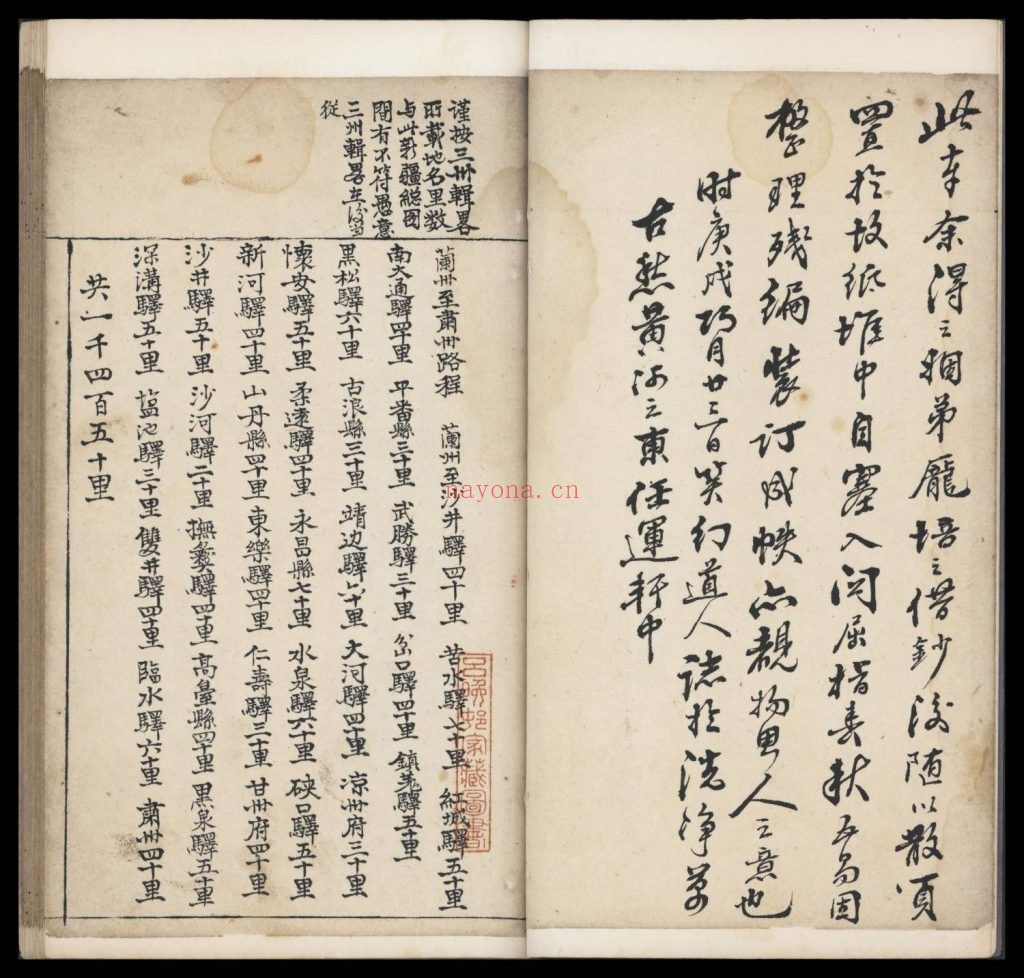 此本余得之姻弟龐培之借鈔後随以散頁
置於故紙堆中自塞入関屈指春秋五易因
整理残编装订成帙亦覩物思人之意也
时庚戌巧月廿三日笑幻道人誌於洗净万
古愁黄河之東任運軒中
谨按三州輯畧
所載地名里数
与此新疆總图
間有不符愚意
三州輯畧在後當
從
蘭州至肅州路程　蘭州至沙井驛四十里　苦水驛七十里　紅城驛五十里
南大通驛四十里　平番縣三十里　武勝驛三十里　岔口驛四十里　鎮羌驛五十里
黑松驛六十里　古浪縣三十里　靖边驛六十里　大河驛四十里　凉州府三十里
懷安驛五十里　柔遠驛四十里　永昌縣七十里　水泉驛六十里　硤口驛五十里
新河驛四十里　山丹縣四十里　東樂驛四十里　仁壽驛三十里　甘州府四十里
沙井驛五十里　沙河驛二十里　撫彝驛四十里　高臺縣四十里　黑泉驛五十里
深溝驛五十里　塩池驛三十里　雙井驛四十里　臨水驛六十里　肅州四十里
共一千四百五十里
吕晚邨家藏圖書
nayona.cn